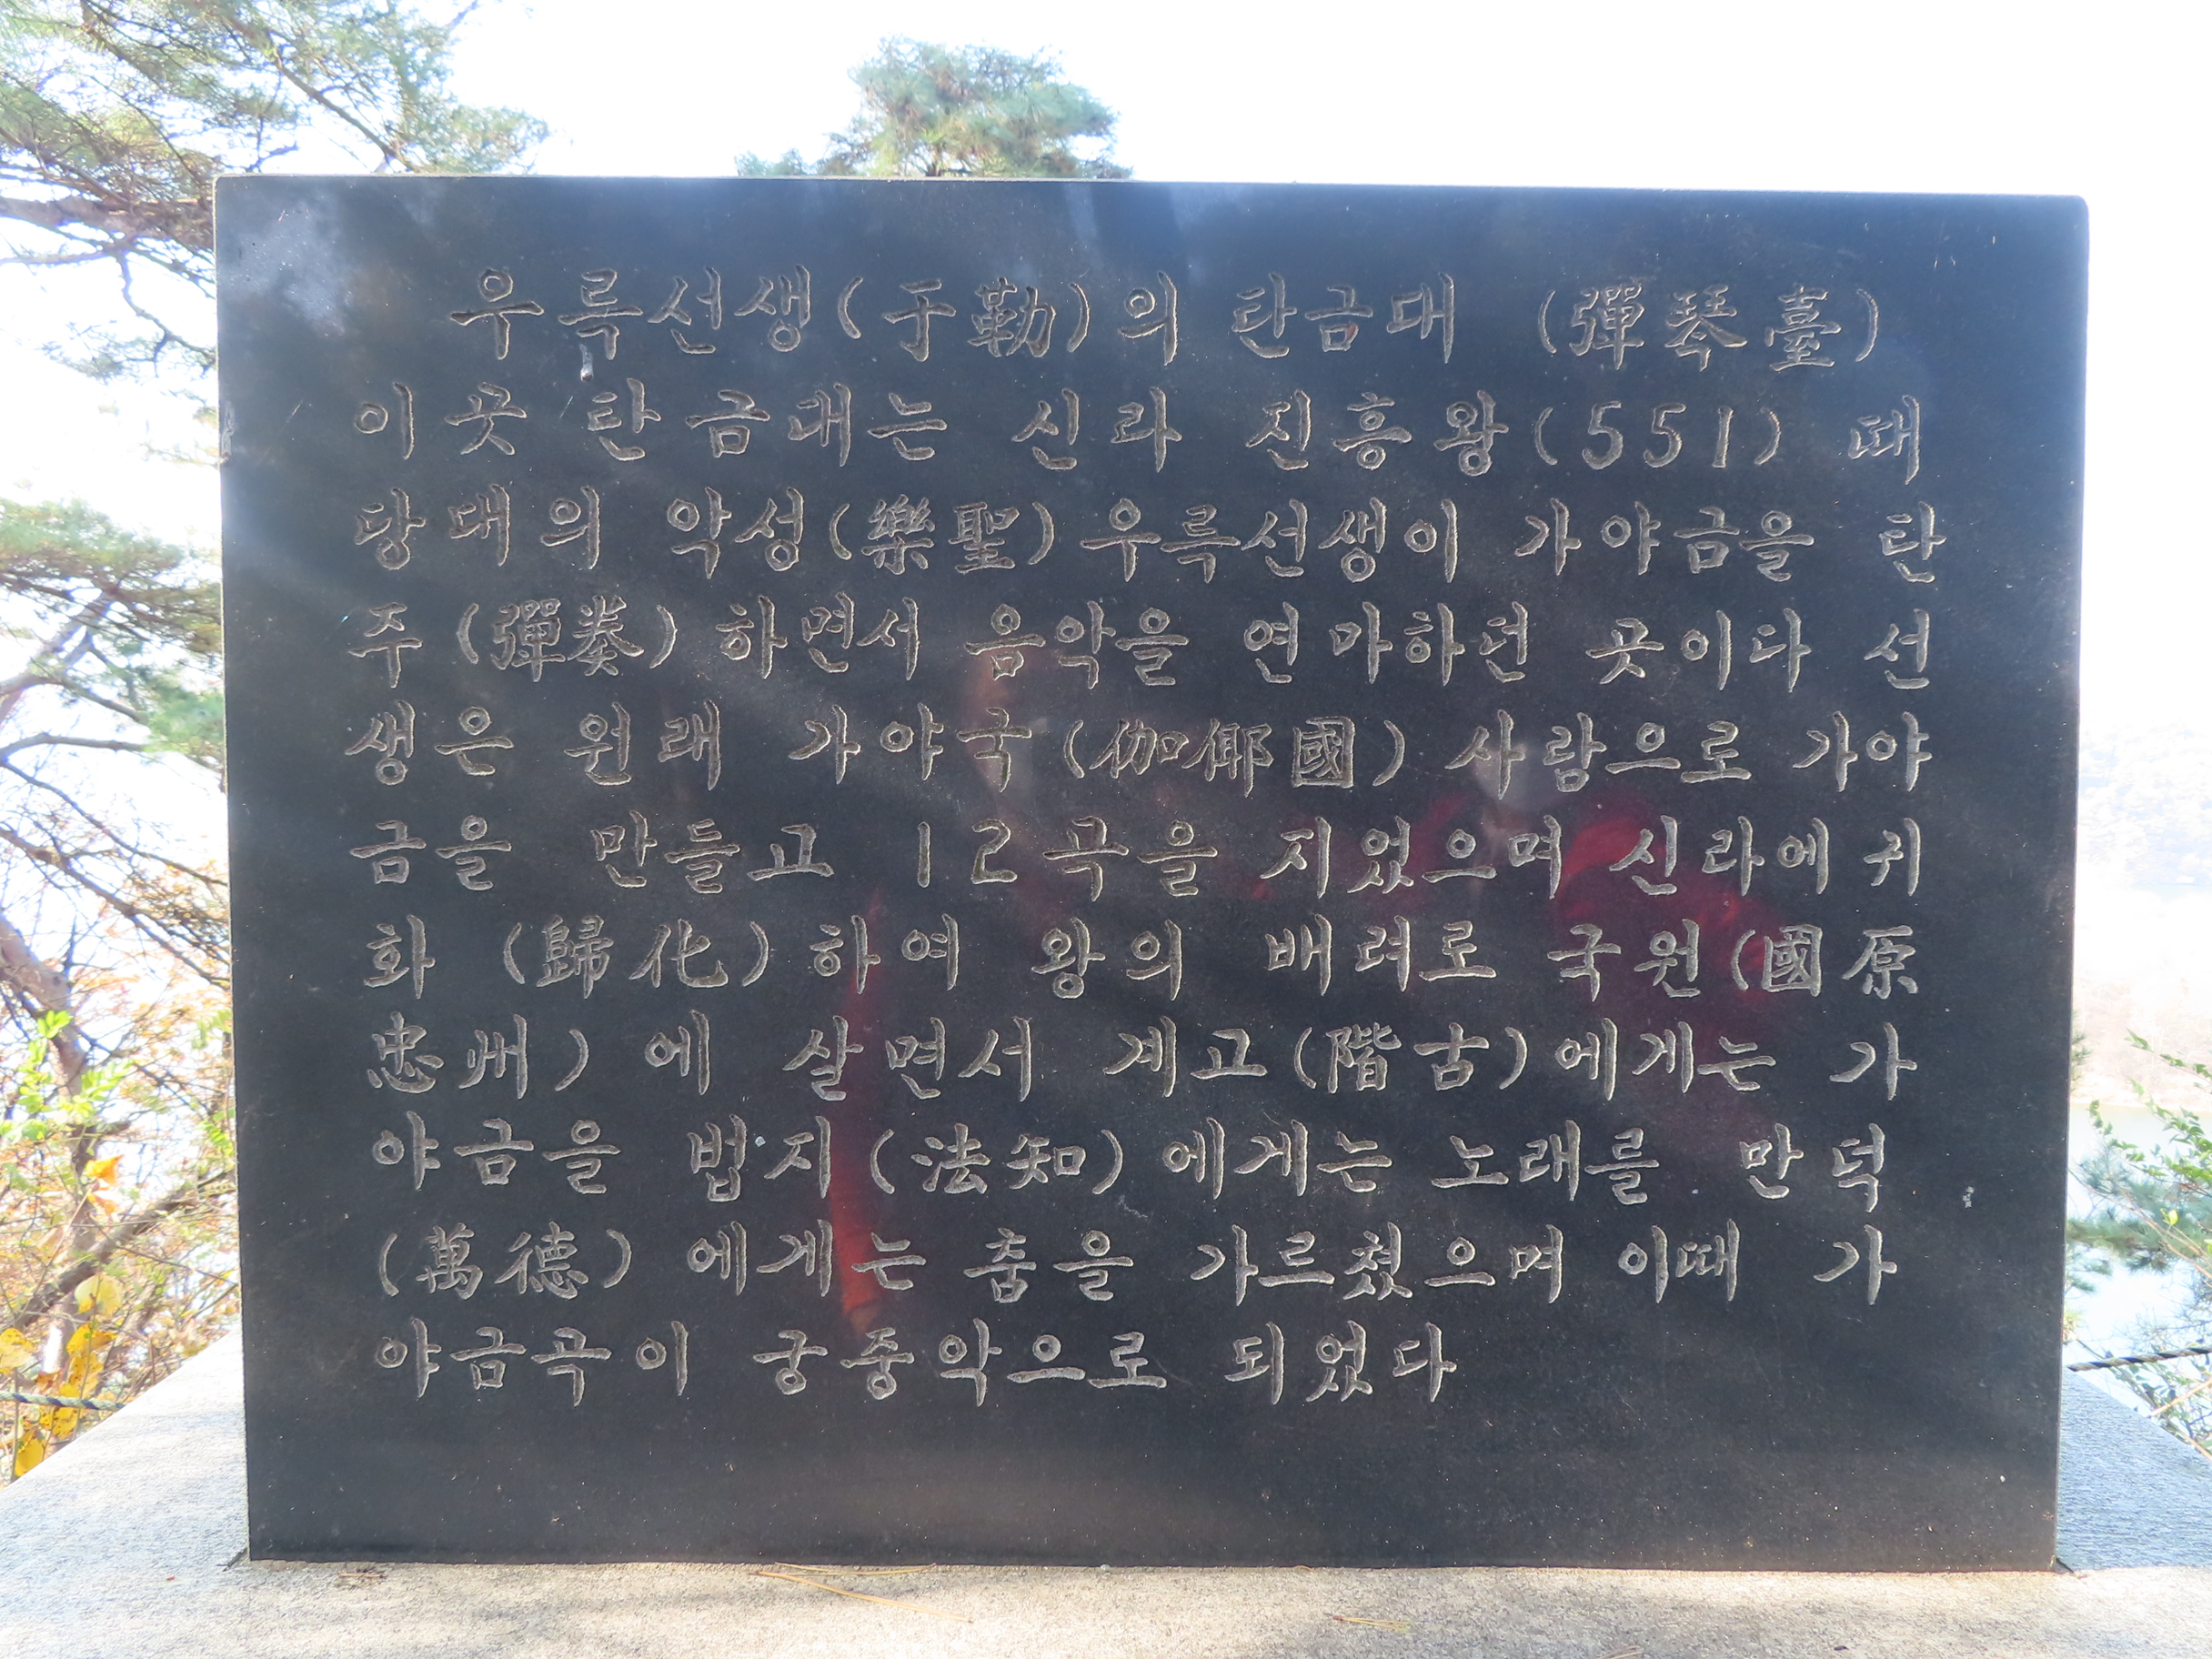 우륵선생(于勒)의 탄금대 (彈琴臺)
이곳 탄금대는 신라 진흥왕(551) 때
당대의 악성(樂聖)우륵선생이 가야금을 탄
주(彈奏)하면서 음악을 연마하던 곳이다 선
생은 원래 가야국(伽倻國) 사람으로 가야
금을 만들고 12곡을 지었으며 신라에 귀
화 (歸化)하여 왕의 배려로 국원(國原
忠州)에 살면서 계고(階古)에게는 가
야금을 법지(法知)에게는 노래를 만덕
(萬德)에게는 춤을 가르쳤으며 이때 가
야금곡이 궁중악으로 되었다